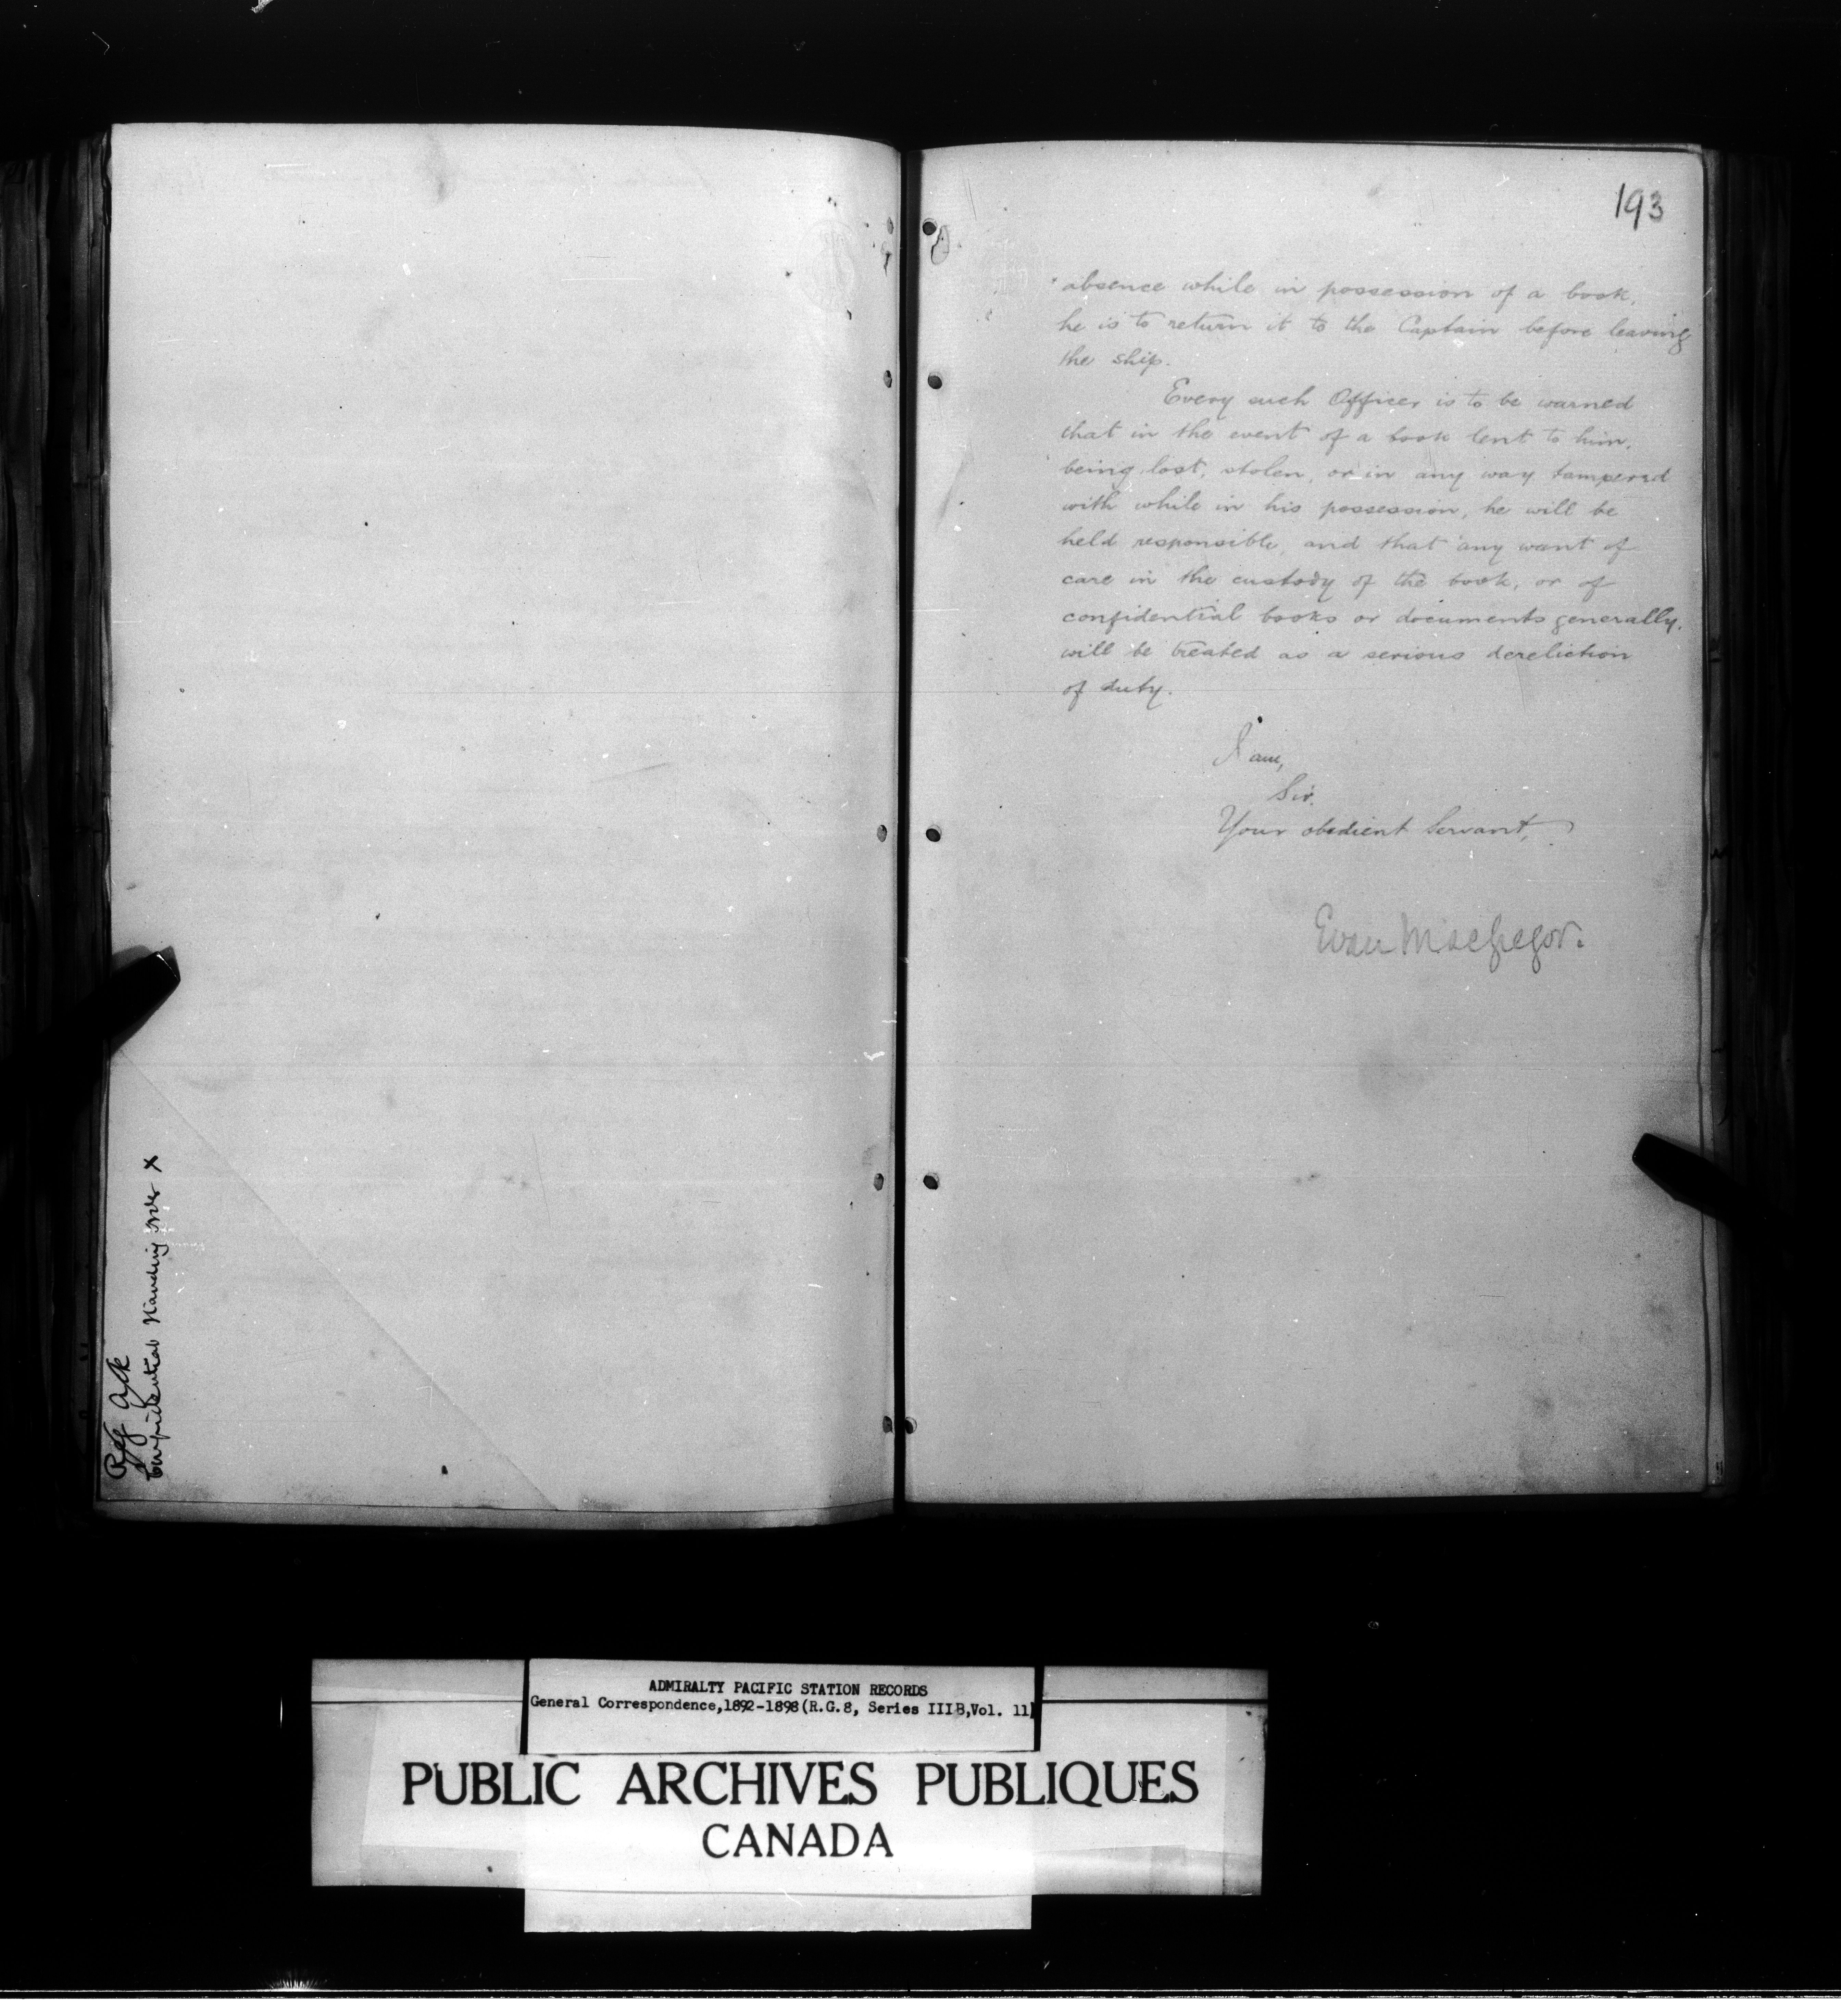 Ack
Confidential Handing over X
193
absence while in possession of a book,
he is to return it to the Captain before leaving
the ship.
Every such Officer is to be warned
that in the event of a book lent to him,
being lost, stolen, or in any way tampered
with while in his possession, he will be
held responsible, and that any want of
care in the custody of the book, or of
confidential books or documents generally,
will be treated as a serious dereliction
of duty.
I am,
Sir,
Your obedient Servant,
Evan MacGregor.
ADMIRALTY PACIFIC STATION RECORDS
General Correspondence,1892-1898(R.G.8, Series IIIB,Vol. 11)
PUBLIC ARCHIVES PUBLIQUES
CANADA